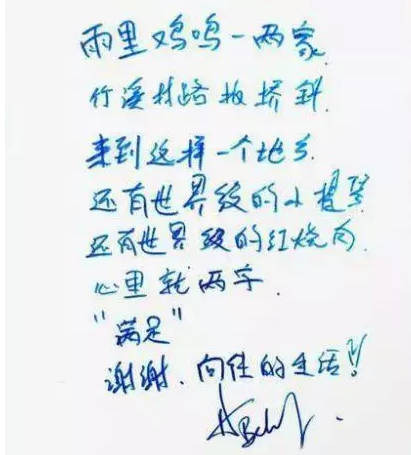 雨里鸡鸣一两家
竹溪村路板桥斜
来到这样一个地方.
还有世界级的小提琴
还有世界级的红烧肉.
心里就两字.
"满足"
谢谢.向往的生活!!